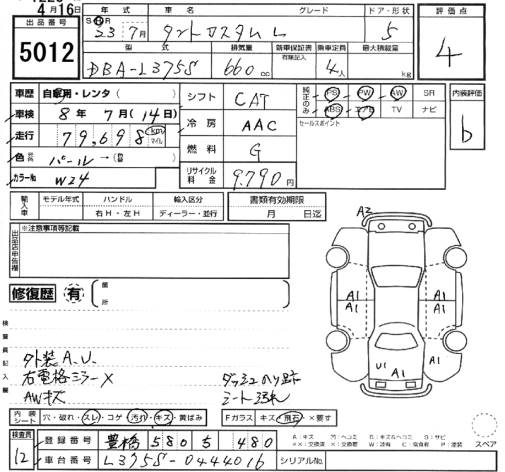 4月16日
出品番号
5012
年式 車名 グレード ドア・形状
S H 23 7月 タントカスタム L 5
型式 排気量 新車保証書 乗車定員 最大積載量
有無記入
DBA-L375S 660cc 4人 kg
評価点
4
内装評価
b
車歴 自家用・レンタ( )
車検 8年7月(14日)
走行 79,698 km マイル
色 パール→( )
カラーNo W24
シフト CAT
冷房 AAC
燃料 G
リサイクル料金 9,790円
純正のみ PS PW AW SR
ABS エアB TV ナビ
セールスポイント
輸入車 モデル年式 ハンドル 輸入区分
右H・左H ディーラー・並行
書類有効期限
月 日迄
出品店申告欄
※注意事項等記載
修復歴 有 箇所
検査員記入欄
外装A.U.
右電格ミラーX
AWキズ
ダッシュのり跡
シートヨゴレ
A2
A1 A1 A1 A1
U1 A1
内装シート 穴・破れ・スレ・コゲ・汚れ・キズ・黄ばみ
Fガラス キズ・飛石・X要す
検査員 12
登録番号 豊橋 580 5 480
車台番号 L375S-0444016
シリアルNo.
スペア